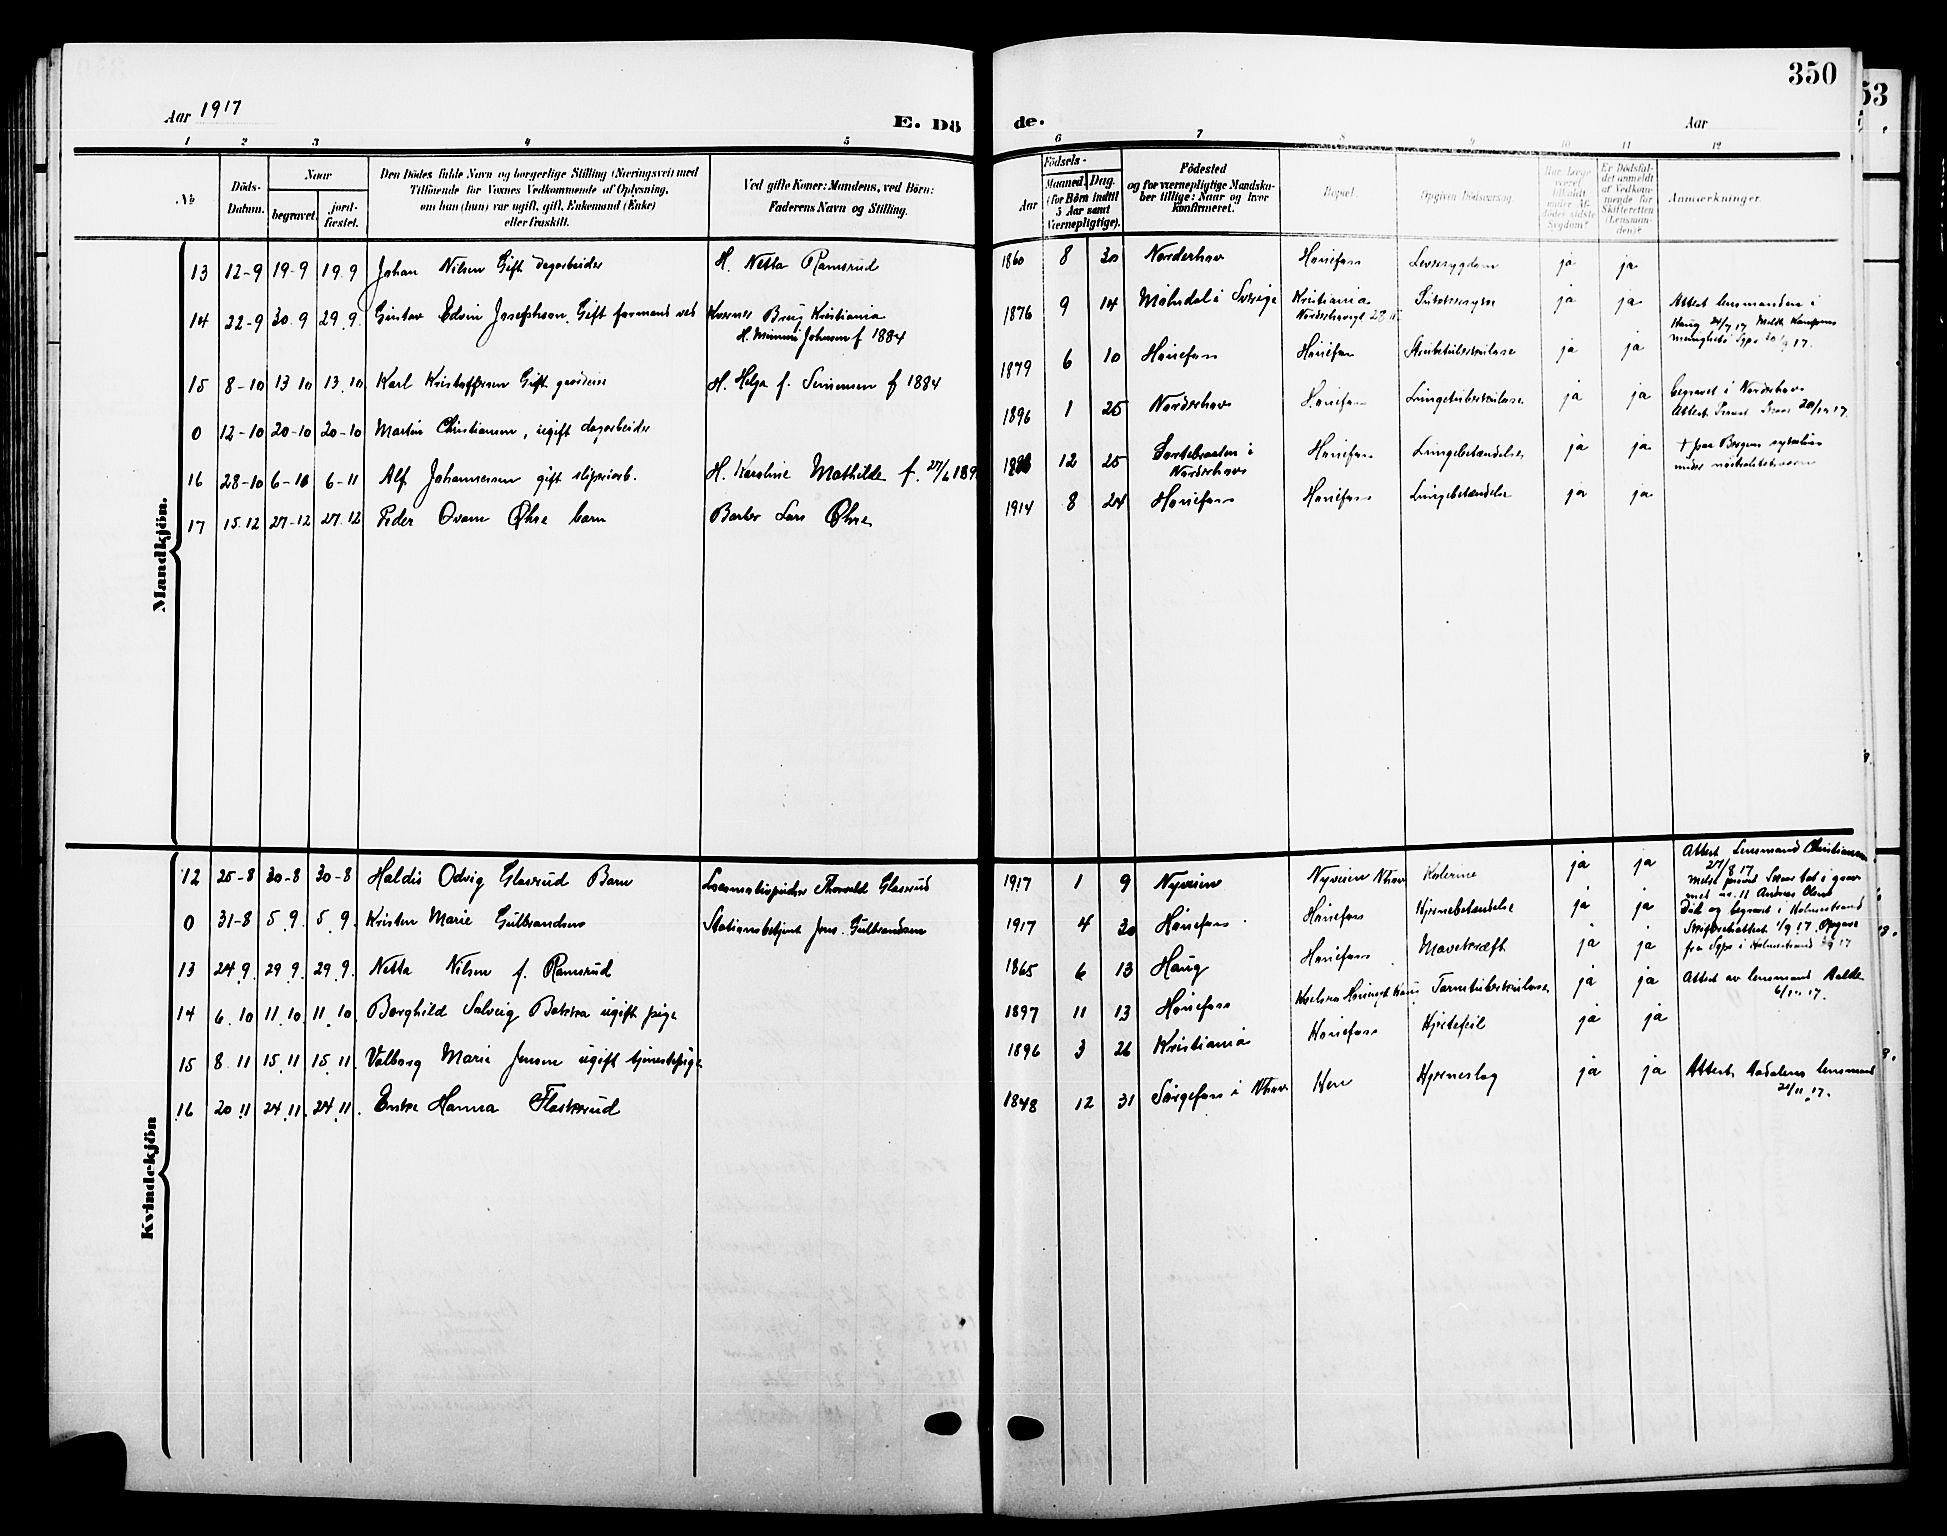 350
53
Aar 1917
E. Dö
de.
Aar
1 2 3 4 5
6 7 8 9 10 11 12
No
Döds-
Datum.
Naar
begravet.
jord-
fæstet.
Den Dödes fulde Navn og borgerlige Stilling (Næringsvei) med
Tilföiende for Voxnes Vedkommende af Oplysning,
om han (hun) var ugift, gift, Enkemand (Enke)
eller fraskilt.
Ved gifte Koner: Mandens, ved Börn:
Faderens Navn og Stilling.
Aar
Födsels-
Maaned. Dag.
(for Börn indtil
5 Aar samt
Værnepligtige).
Födested
og for værnepligtige Mandska-
ber tillige: Naar og hvor
konfirmeret.
Bopæl.
Opgiven Dödsaarsag.
Har Læge
været
tilkaldt
under Af-
dödes sidste
Sygdom?
Er Dödsfal-
det anmeldt
af Vedkom-
mende for
Skifteretten
(Lensman-
den)?
Anmærkninger.
Mandkjön.
13 12-9 19-9 19.9 Johan Nilsen Gift dagarbeider H. Netta Ramsrud 1860 8 30 Norderhov Hønefoss Leversygdom ja ja
14 22-9 30.9 29.9. Gustav Edvin Josephson. Gift formand ved Kværner Brug Kristiania 1876 9 14 Mölndal i Sverige Kristiania Sukkersyge ja ja Attest lensmanden i
H. Mimmi Johnsen f 1884 Norderhovgt 28
Haug 24/9 17 Meldt Kampens
menighets Sgpr 20/9 17.
15 8-10 13 10 13.10 Karl Kristoffersen Gift H. Helga f. Simensen f 1884 1879 6 10 Hønefoss Hønefoss Strubetuberkulose ja ja
0 12-10 20-10 20-10 Martin Christiansen, ugift dagarbeider 1896 1 25 Norderhov Hønefoss Lungetuberkulose ja ja begravet i Norderhov
Attest 20/10 17.
16 28-10 6-10 6-11 Alf Johannessen gift sliperiarb. H. Karoline Mathilde f. 27/6 189 12 25 Svartebraaten i Hønefoss Lungebetændelse ja ja + paa Bergens sykehus
Norderhov
under
17 15.12 27-12 27.12 Peder Ovam Øhre barn Barber Lars Øhre 1914 8 24 Hønefoss Hønefoss Lungebetændelse ja ja
Kvindekjön
12 25-8 30-8 30-8 Haldis Odvig Glasrud Barn Lokomotivpudser Thorvald Glasrud 1917 1 9 Nyveien Nyveien Nhov Kolerine ja ja Attest Lensmand Christiansen
27/8 17
met nr. 11 Andreas Olsen
0 31-8 5.9. 5.9. Kristen Marie Gulbrandsen Stationsbetjent Jens Gulbrandsen 1917 4 30 Hønefoss Hønefoss Hjernebetændelse ja ja Død og begravet i Holmestrand
Skifteretsattest 1/9 17. Opgave
fra Sgpr i Holmestrand 9 17
13 24.9. 29.9. 29.9. Netta Nilsen f. Ramsrud 1865 6 13 Haug Hønefoss Mavekræft ja ja
14 6.10 11.10. 11.10. Borghild Solveig Bakka ugift pige 1897 11 13 Hønefoss Tarmtuberkulose ja ja Attest av lensmand
6/10 17.
15 8.11 15.11 15.11. Valborg Marie Jensen ugift tjenestepige 1896 3 26 Kristiania Hønefoss Hjertefeil ja ja
16 20.11 24.11. 24.11. Enke Hanna Flaskerud 1848 12 31 Sørgefoss i Nhov Hen Hjerneslag ja ja Attest Aadalens lensmand
21/11 17.